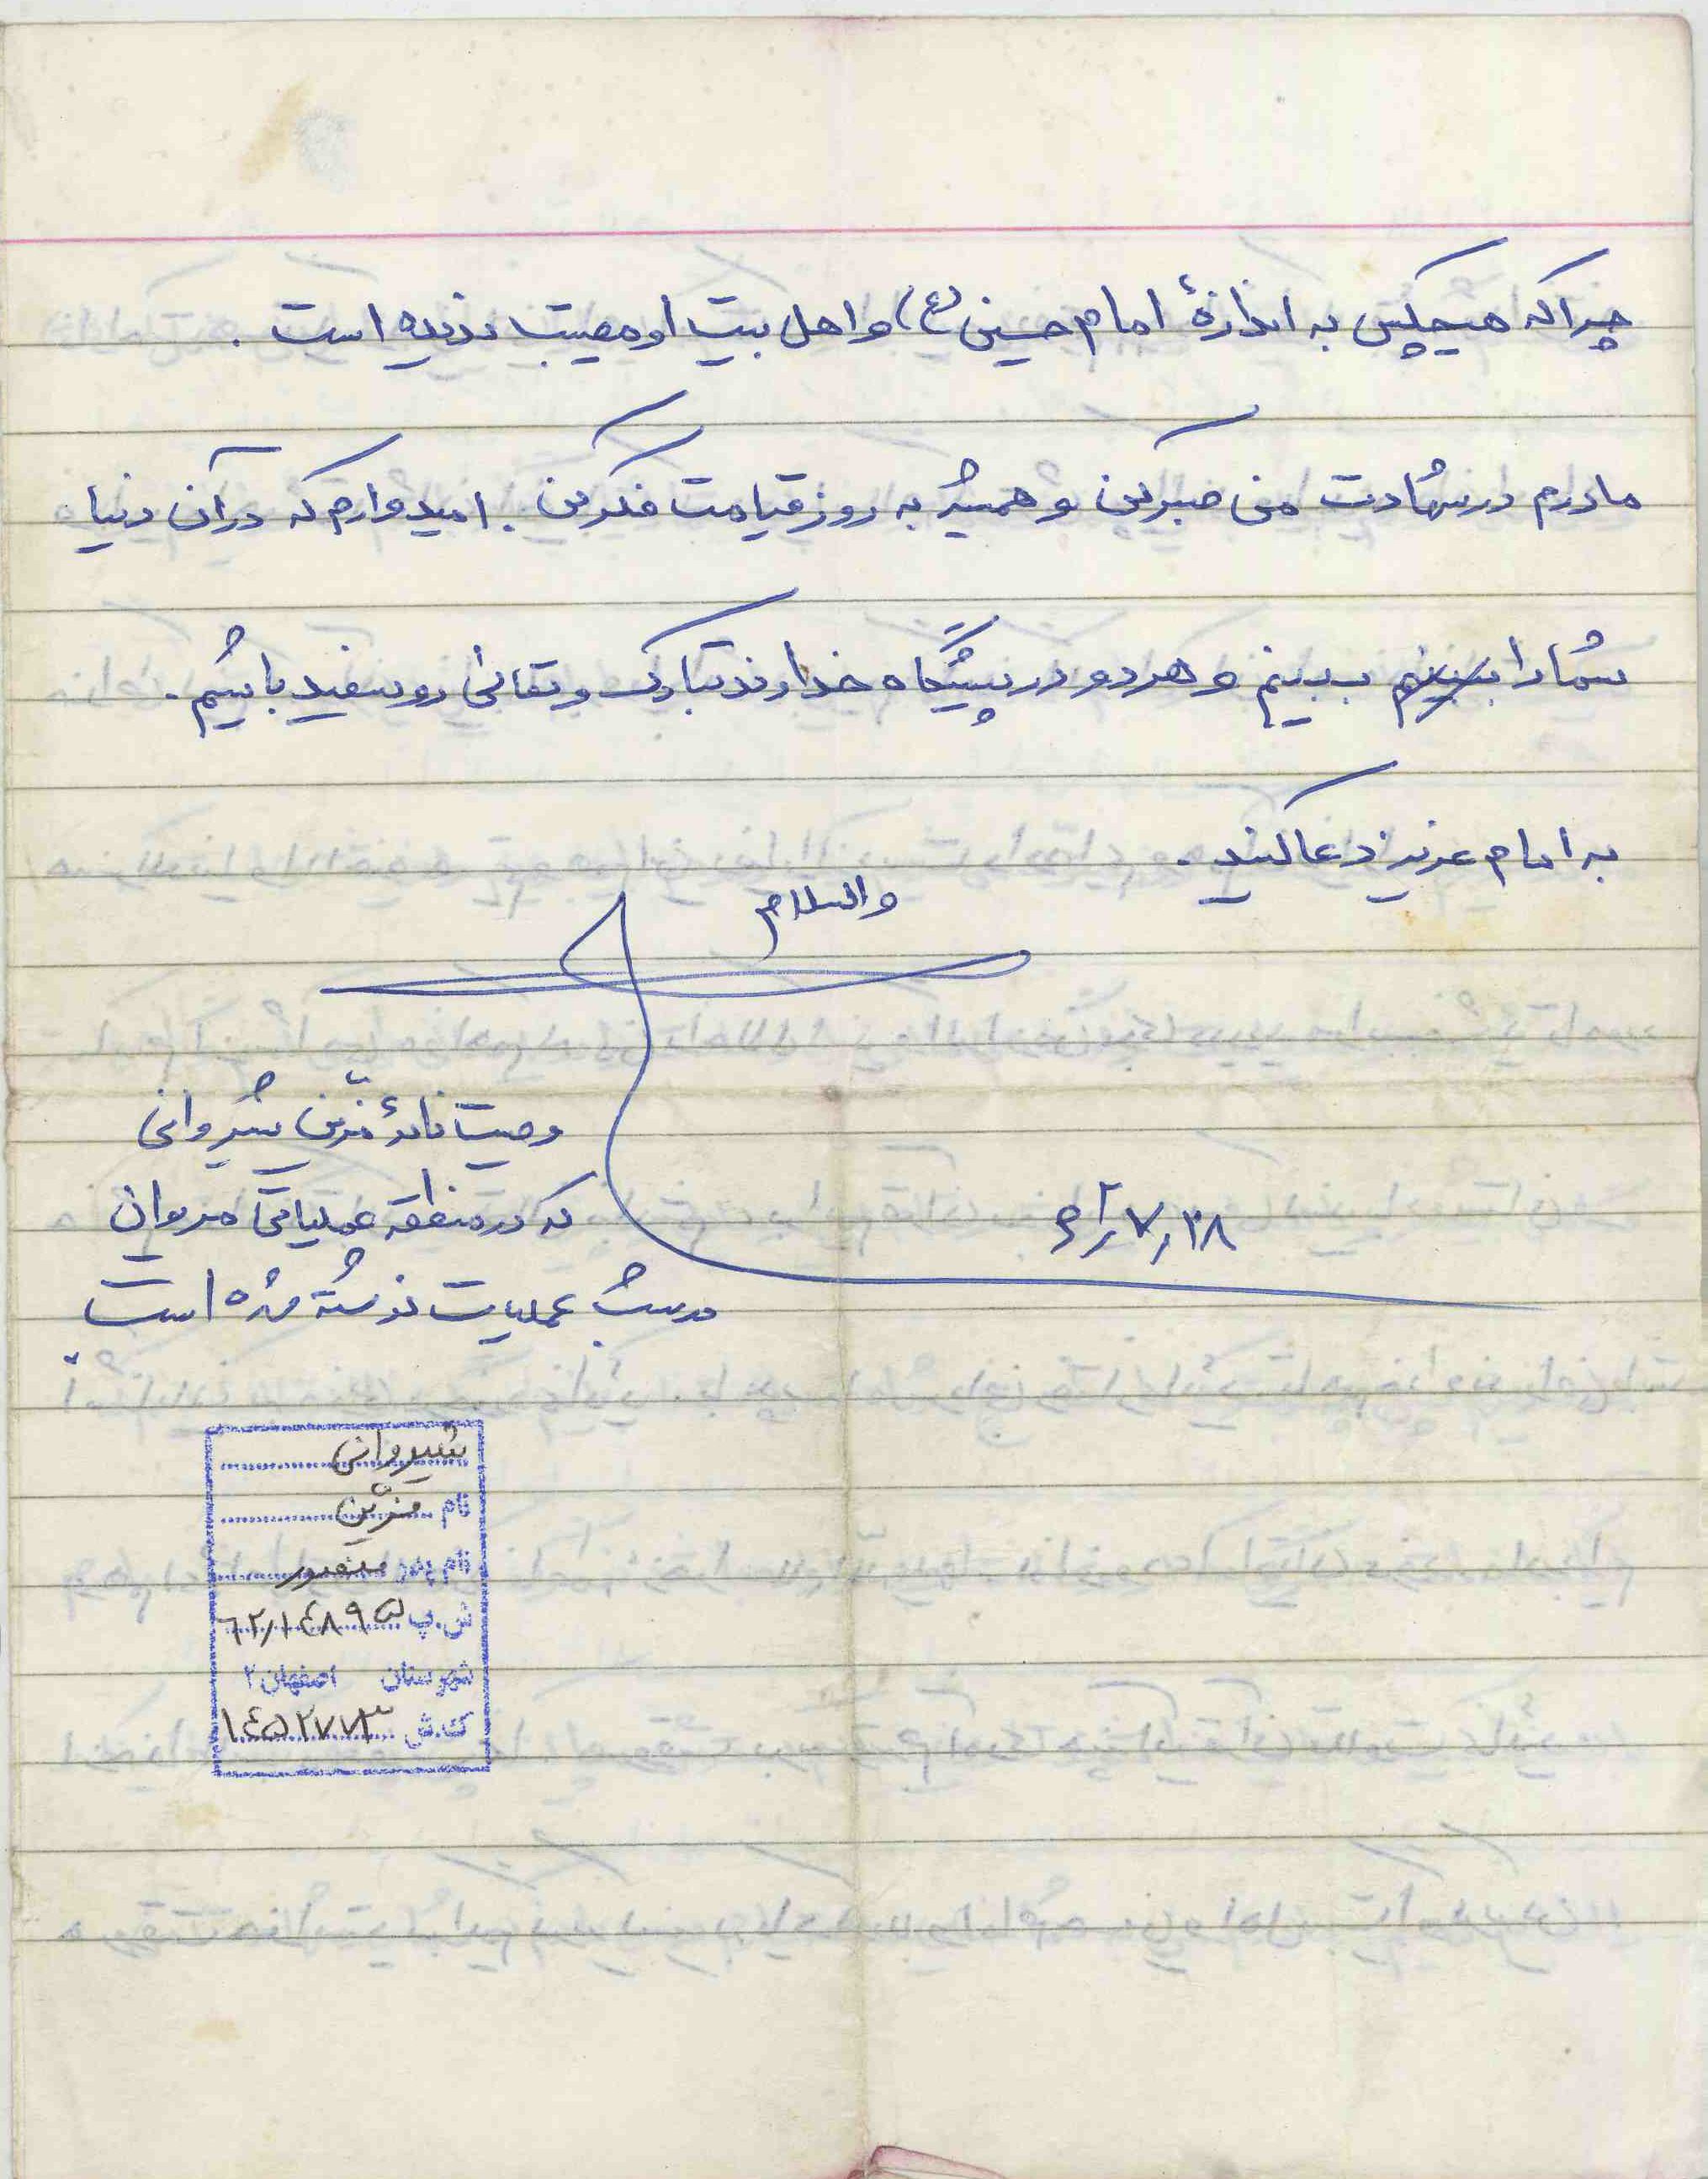 چرا که هیچکس به اندازهٔ امام حسین (ع) و اهل بیت او مصیبت ندیده است .
مادرم در شهادت من صبر کن و همیشه به روز قیامت فکر کن . امیدوارم که در آن دنیا
شما را ببینم ببینم و هر دو در پیشگاه خداوند تبارک و تعالی رو سفید باشیم .
به امام عزیز دعا کنید .
والسلام
وصیت نامهٔ مزین شیروانی
که در منطقه عملیاتی مریوان
۶۲/۷/۲۸
در شب عملیات نوشته شده است .
شیروانی
نام مزین
نام پدر منصور
ش.پ ۶۲/۱۴۸۹۵
شهرستان اصفهان ۲
ک.ش ۱۴۵۲۷۷۳